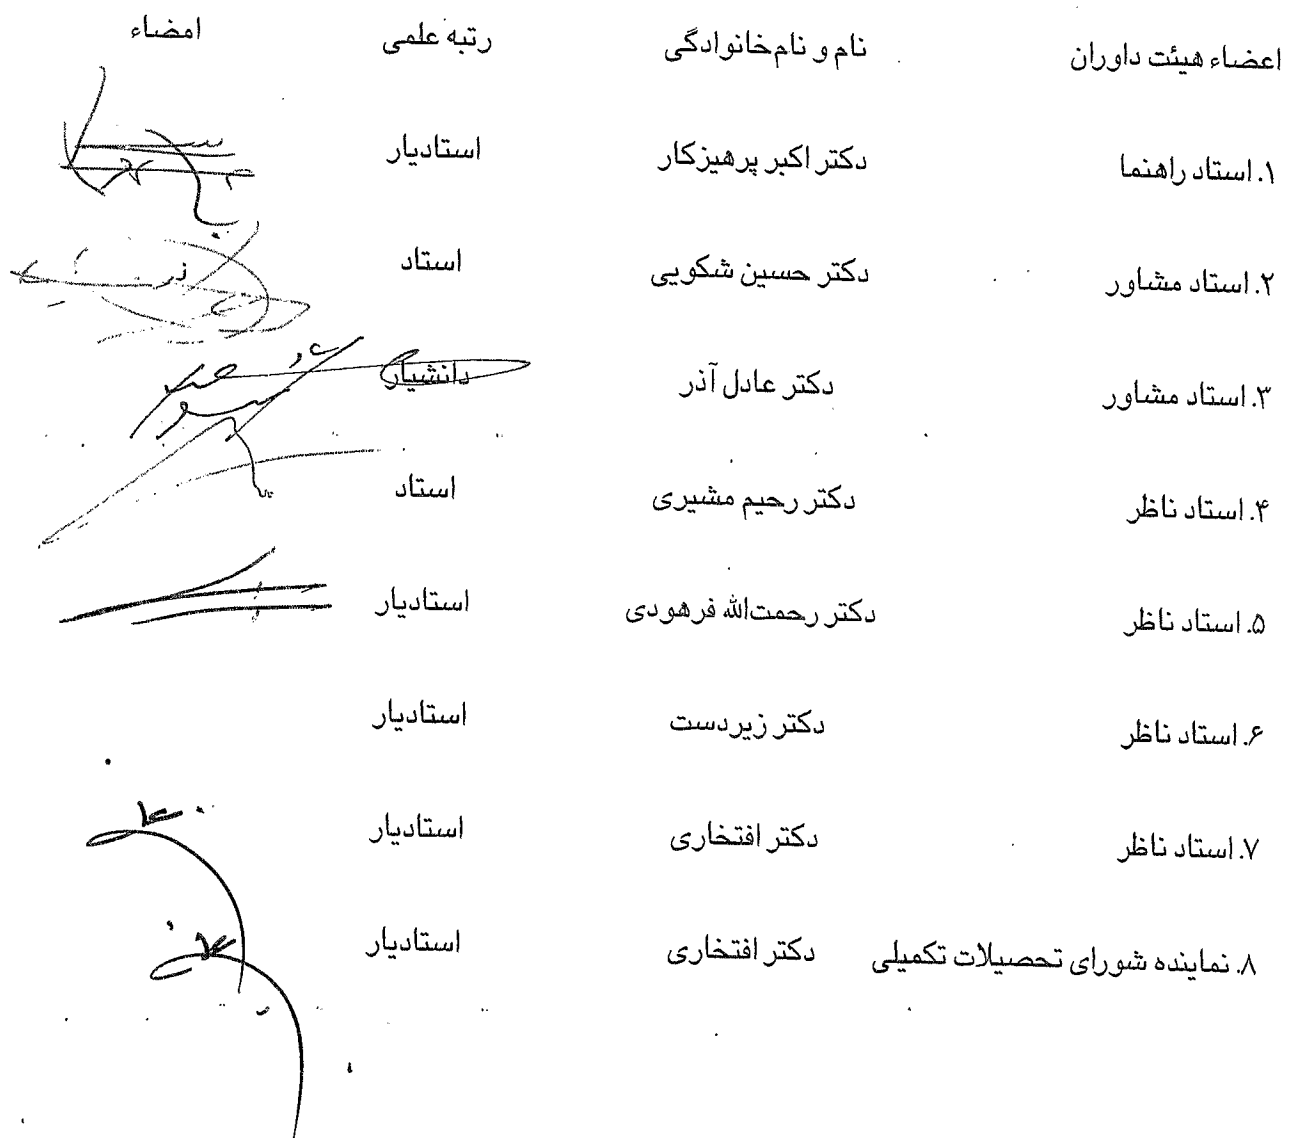 اعضاء هیئت داوران نام و نام‌خانوادگی رتبه علمی امضاء
۱. استاد راهنما دکتر اکبر پرهیزکار استادیار
۲. استاد مشاور دکتر حسین شکویی استاد
۳. استاد مشاور دکتر عادل آذر دانشیار
۴. استاد ناظر دکتر رحیم مشیری استاد
۵. استاد ناظر دکتر رحمت‌الله فرهودی استادیار
۶. استاد ناظر دکتر زبردست استادیار
۷. استاد ناظر دکتر افتخاری استادیار
۸. نماینده شورای تحصیلات تکمیلی دکتر افتخاری استادیار